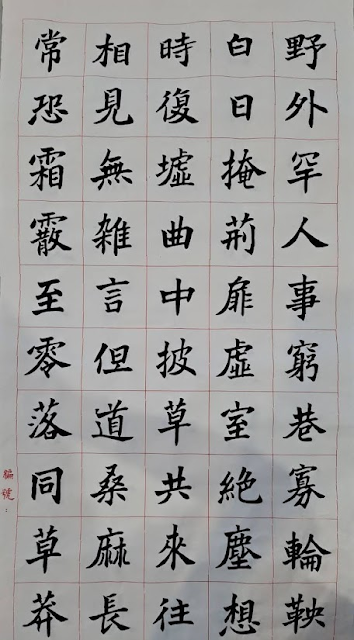 野外罕人事窮巷寡輪鞅
白日掩荊扉虛室絶塵想
時復墟曲中披草共來往
相見無雑言但道桑麻長
常恐霜霰至零落同草莽
編號：